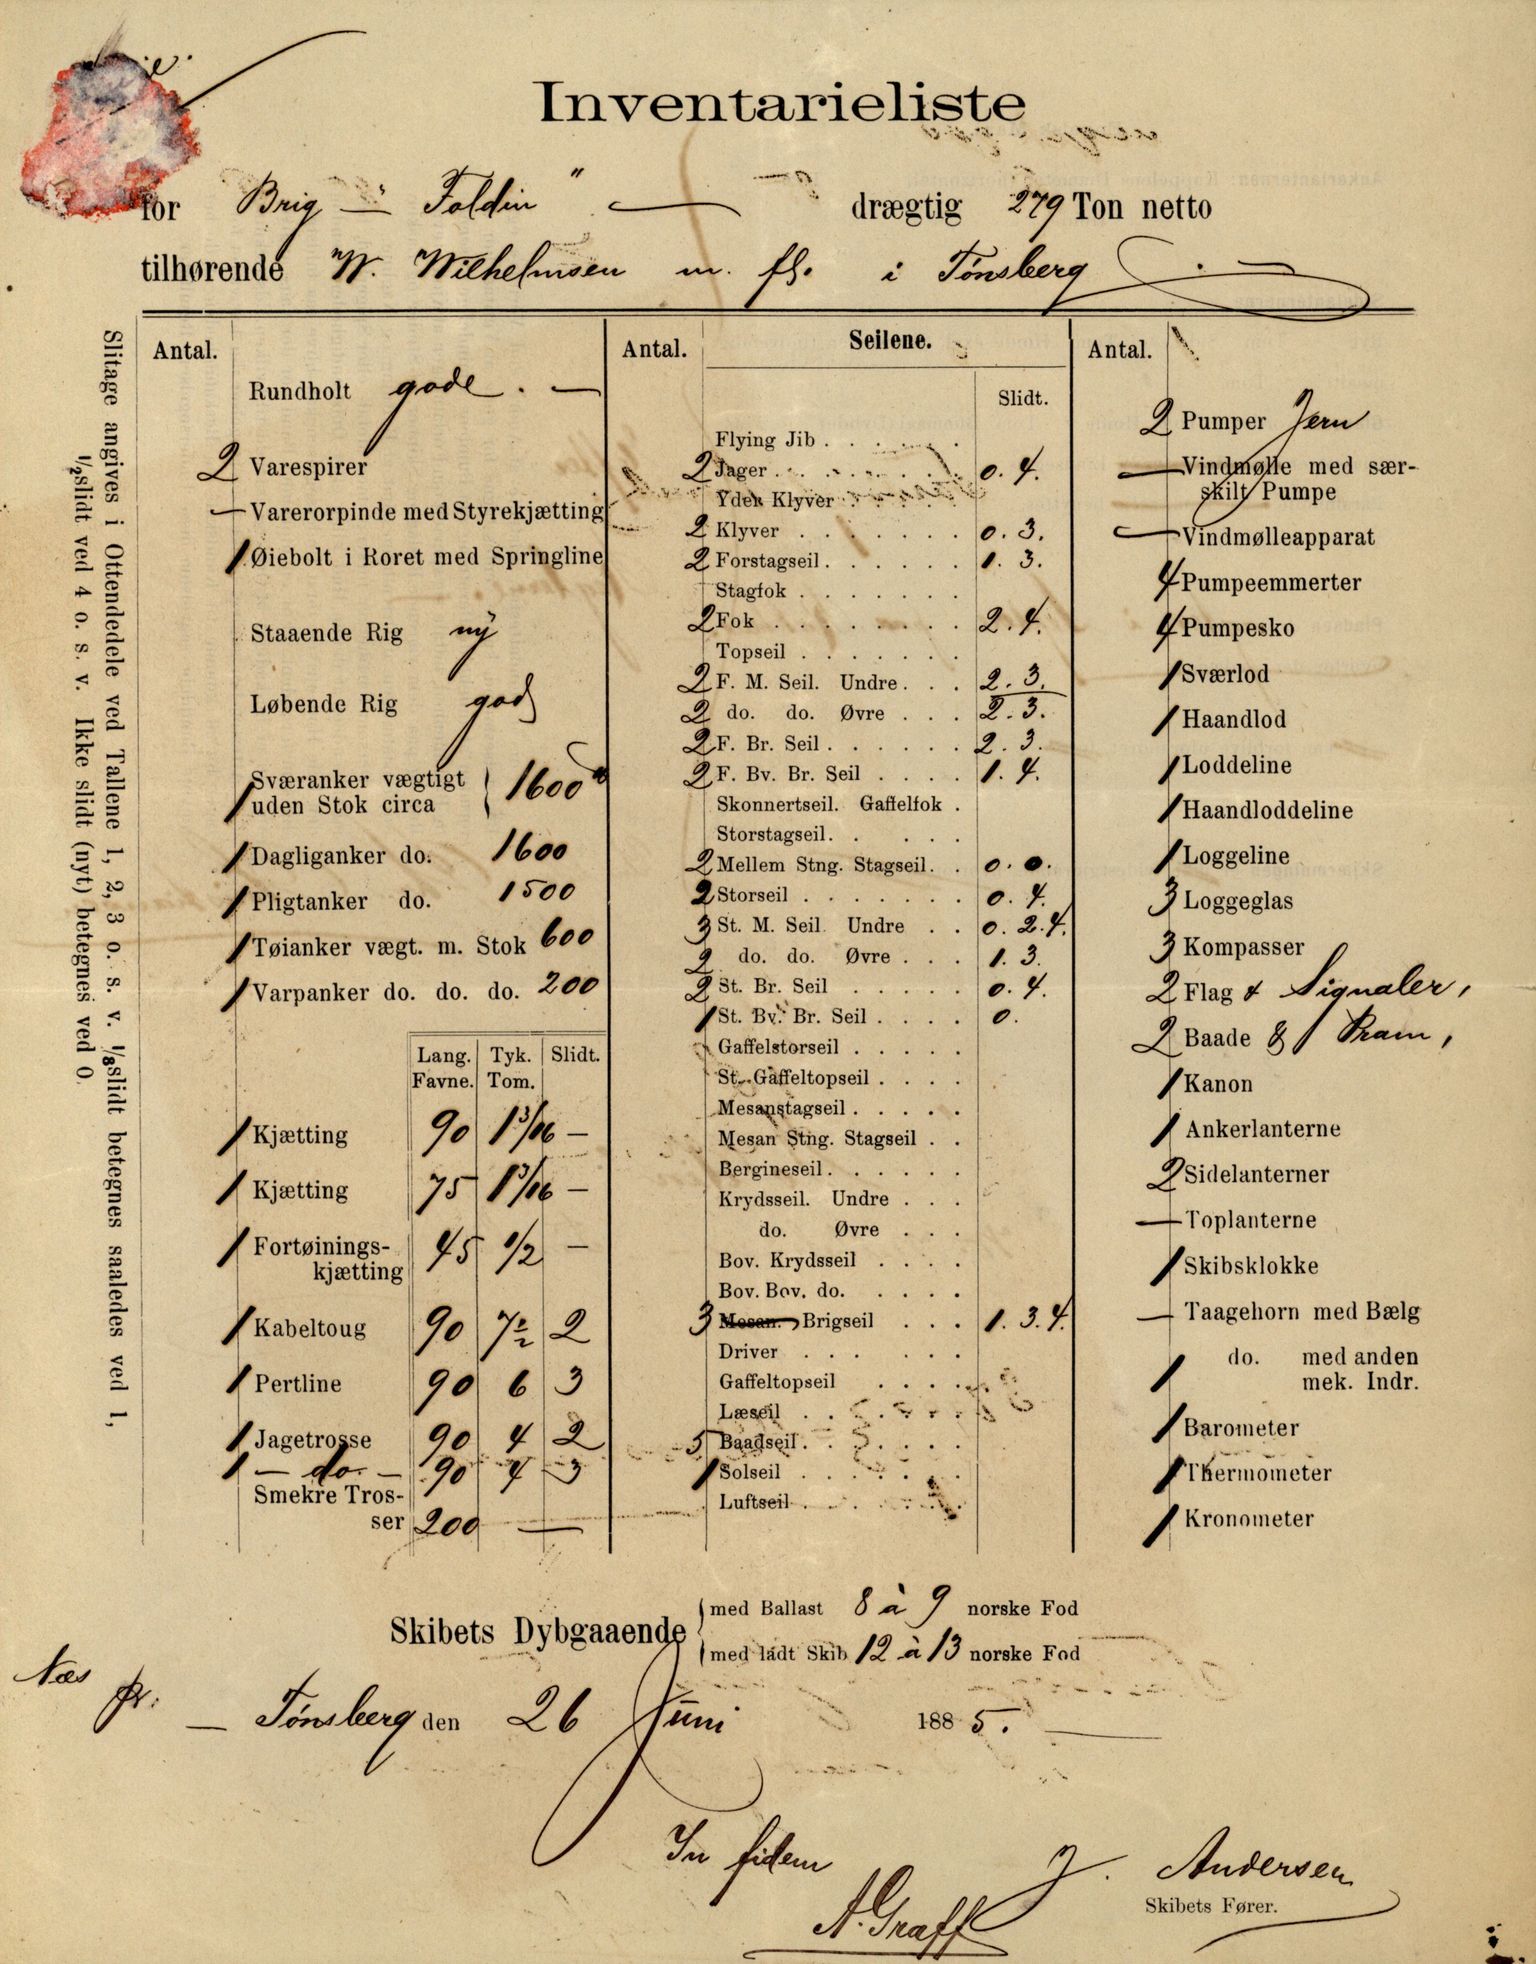 Inventarieliste
for Brig — "Foldin" — drægtig 279 Ton netto
tilhørende W. Wilhelmsen m. fl. i Tønsberg
Slitage angives i Ottendedele ved Tallene 1, 2, 3 o. s. v. 1/8 slidt betegnes saaledes ved 1,
1/2 slidt ved 4 o. s. v. Ikke slidt (nyt) betegnes ved 0.
Antal.
Rundholt gode. —
2 Varespirer
— Varerorpinde med Styrekjætting
1 Øiebolt i Roret med Springline
Staaende Rig ny
Løbende Rig god
1 Sværanker vægtigt uden Stok circa } 1600
1 Dagliganker do. 1600
1 Pligtanker do. 1500
1 Tøianker vægt. m. Stok 600
1 Varpanker do. do. do. 200
Lang. Favne. Tyk. Tom. Slidt.
1 Kjætting 90 1 3/16 —
1 Kjætting 75 1 3/16 —
1 Fortøinings-
kjætting 45 1/2 —
1 Kabeltoug 90 7 1/2 2
1 Pertline 90 6 3
1 Jagetrosse 90 4 2
1 — do. — 90 4 3
Smekre Tros-
ser 200 —
Antal. Seilene.
Slidt.
Flying Jib . . . . .
2 Jager . . . . . . . 0. 4.
Yder Klyver . . . . .
2 Klyver . . . . . . . 0. 3.
2 Forstagseil . . . . . . 1. 3.
Stagfok . . . . . . .
2 Fok . . . . . . . . 2. 4.
Topseil . . . . . . .
2 F. M. Seil. Undre . . . 2. 3.
2 do. do. Øvre . . . 2. 3.
2 F. Br. Seil . . . . . . 2. 3.
2 F. Bv. Br. Seil . . . . 1. 4.
Skonnertseil. Gaffelfok .
Storstagseil. . . . .
2 Mellem Stng. Stagseil . . 0. 0.
2 Storseil . . . . . . . 0. 4.
3 St. M. Seil. Undre . . 0. 2. 4.
2 do. do. Øvre . . . 1. 3.
2 St. Br. Seil . . . . . 0. 4.
1 St. Bv. Br. Seil . . . . 0.
Gaffelstorseil . . . . .
St. Gaffeltopseil . . . .
Mesanstagseil . . . . .
Mesan Stng. Stagseil . .
Bergineseil . . . . . .
Krydsseil. Undre . . .
do. Øvre . . .
Bov. Krydsseil . . . .
Bov. Bov. do. . . . .
3 Mesan. Brigseil . . . 1. 3. 4.
Driver . . . . . .
Gaffeltopseil . . . .
Læseil . . . . . .
5 Baadseil . . . . . .
1 Solseil . . . . . . .
Luftseil . . . . . .
Antal.
2 Pumper Jern
— Vindmølle med sær-
skilt Pumpe
— Vindmølleapparat
4 Pumpeemmerter
4 Pumpesko
1 Sværlod
1 Haandlod
1 Loddeline
1 Haandloddeline
1 Loggeline
3 Loggeglas
3 Kompasser
2 Flag & Signaler,
2 Baade & 1 Pram,
1 Kanon
1 Ankerlanterne
2 Sidelanterner
— Toplanterne
1 Skibsklokke
— Taagehorn med Bælg
1 do. med anden
mek. Indr.
1 Barometer
1 Thermometer
1 Kronometer
Skibets Dybgaaende { med Ballast 8 à 9 norske Fod
med ladt Skib 12 à 13 norske Fod
Næs pr. — Tønsberg den 26 Juni 1885. —
In fidem
A. Graff
J. Andersen
Skibets Fører.